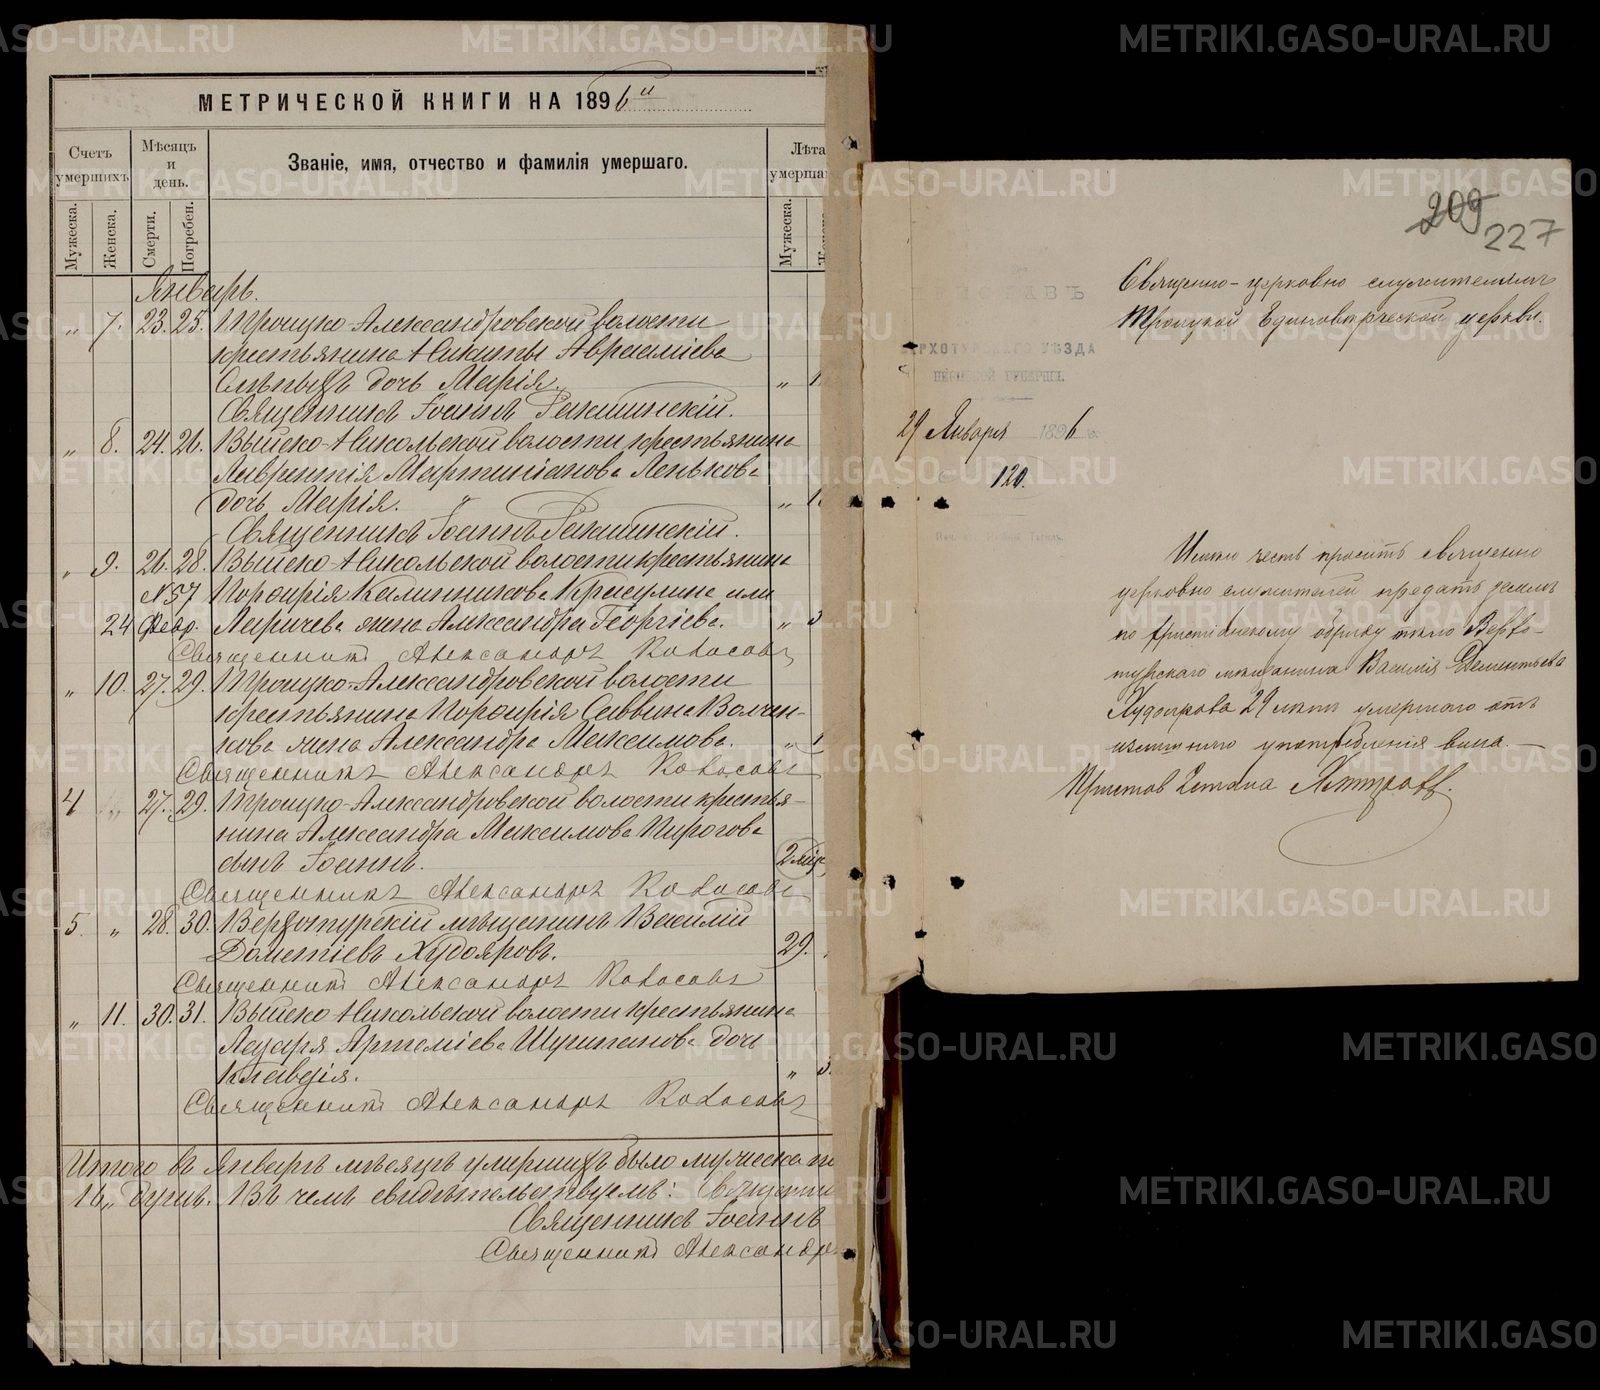 МЕТРИЧЕСКОЙ КНИГИ НА 1896й
Счетъ умершихъ
Мѣсяцъ и день.
Званіе, имя, отчество и фамилія умершаго.
Лѣта умерша
Мужеска.
Женска.
Смерти.
Погребен.
Мужеска.
Январь.
" 7. 23. 25. Троицко-Александровской волости
крестьянина Никиты Авраамiева
Слѣпыхъ дочь Марія.
Священникъ Іоаннъ
" 8. 24. 26. Выйско-Никольской волости крестьянина
Лаврентія Мартиніанова Ленькова
дочь Марія.
Священникъ Іоаннъ
" 9. 26. 28. Выйско-Никольской волости крестьянина
N 57 Порфирія Калинникова Красулина или
24 Февр. Ларичева жена Александра Георгіева. " 3
Священникъ Александръ Колосовъ
" 10. 27. 29. Троицко-Александровской волости
крестьянина Порфирія Саввина Волчен-
кова жена Александра Максимова.
Священникъ Александръ Колосовъ
4 " 27. 29. Троицко-Александровской волости крестья-
нина Александра Максимова Пирогова
сынъ Іоаннъ. 2 мѣс
Священникъ Александръ Колосовъ
5. " 28. 30. Верхотурскій мѣщанинъ Василій
Дометіевъ Худояровъ. 29.
Священникъ Александръ Колосовъ
" 11. 30. 31. Выйско-Никольской волости крестьянина
Лазаря Артеміева Шуританова дочь
Клавдія. " 3.
Священникъ Александръ Колосовъ
Итого въ Январѣ мѣсяцѣ умершихъ было мужеска по
16 душъ. Въ чемъ свидѣтельствуемъ:
Священникъ Іоаннъ
Священникъ Александръ
209
227
Священно-церковно служителямъ
Троицкой Единовѣрческой церкви.
ВЕРХОТУРСКАГО УѢЗДА
ПЕРМСКОЙ ГУБЕРНІИ.
29 Января 1896 г.
120.
Имѣю честь просить священно
церковно служителей предать землѣ
по христіанскому обряду тѣло Верхо-
турскаго мѣщанина Василія Дементьева
Худоярова 29 лѣтъ умершаго отъ
излишняго употребленія вина.
Приставъ 2 стана
METRIKI.GASO-URAL.RU